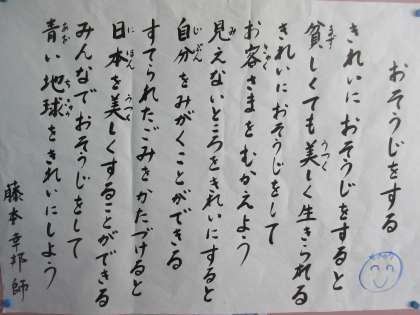 おそうじをする
きれいにおそうじをすると
貧しくても美しく生きられる
きれいにおそうじをして
お客さまをむかえよう
見えないところをきれいにすると
自分をみがくことができる
すてられたごみをかたづけると
日本を美しくすることができる
みんなでおそうじをして
青い地球をきれいにしよう
藤本幸邦師